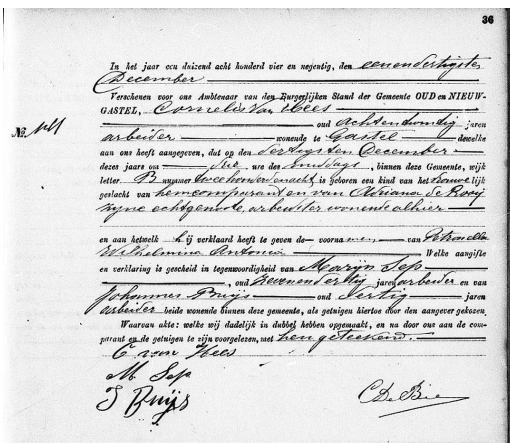 36
In het jaar een duizend acht honderd vier en negentig, den eenendertigsten
December
Verschenen voor ons Ambtenaar van den Burgerlijken Stand der Gemeente OUD en NIEUW-
GASTEL, Cornelis van Hees
oud achtentwintig jaren
No.
arbeider wonende te Gastel dewelke
aan ons heeft aangegeven, dat op den dertigsten December
dezes jaars om drie ure des middags, binnen deze Gemeente, wijk
letter B nummer tweehonderdenacht is geboren een kind van het vrouwelijk
geslacht van hem comparant en van Adriana de Rooij
zijne echtgenote, arbeidster wonende alhier
en aan hetwelk hij verklaard heeft te geven de voornamen van Petronella
Wilhelmina Antonia Welke aangifte
en verklaring is geschied in tegenwoordigheid van Marijn Sep
, oud zevenendertig jaren arbeider en van
Johannes Buijs oud dertig jaren
arbeider beide wonende binnen deze gemeente, als getuigen hiertoe door den aangever gekozen
Waarvan akte: welke wij dadelijk in dubbel hebben opgemaakt, en na door ons aan de com-
parant en de getuigen te zijn voorgelezen, met hen geteekend.
C van Hees
M Sep
J Buijs
C De Bie